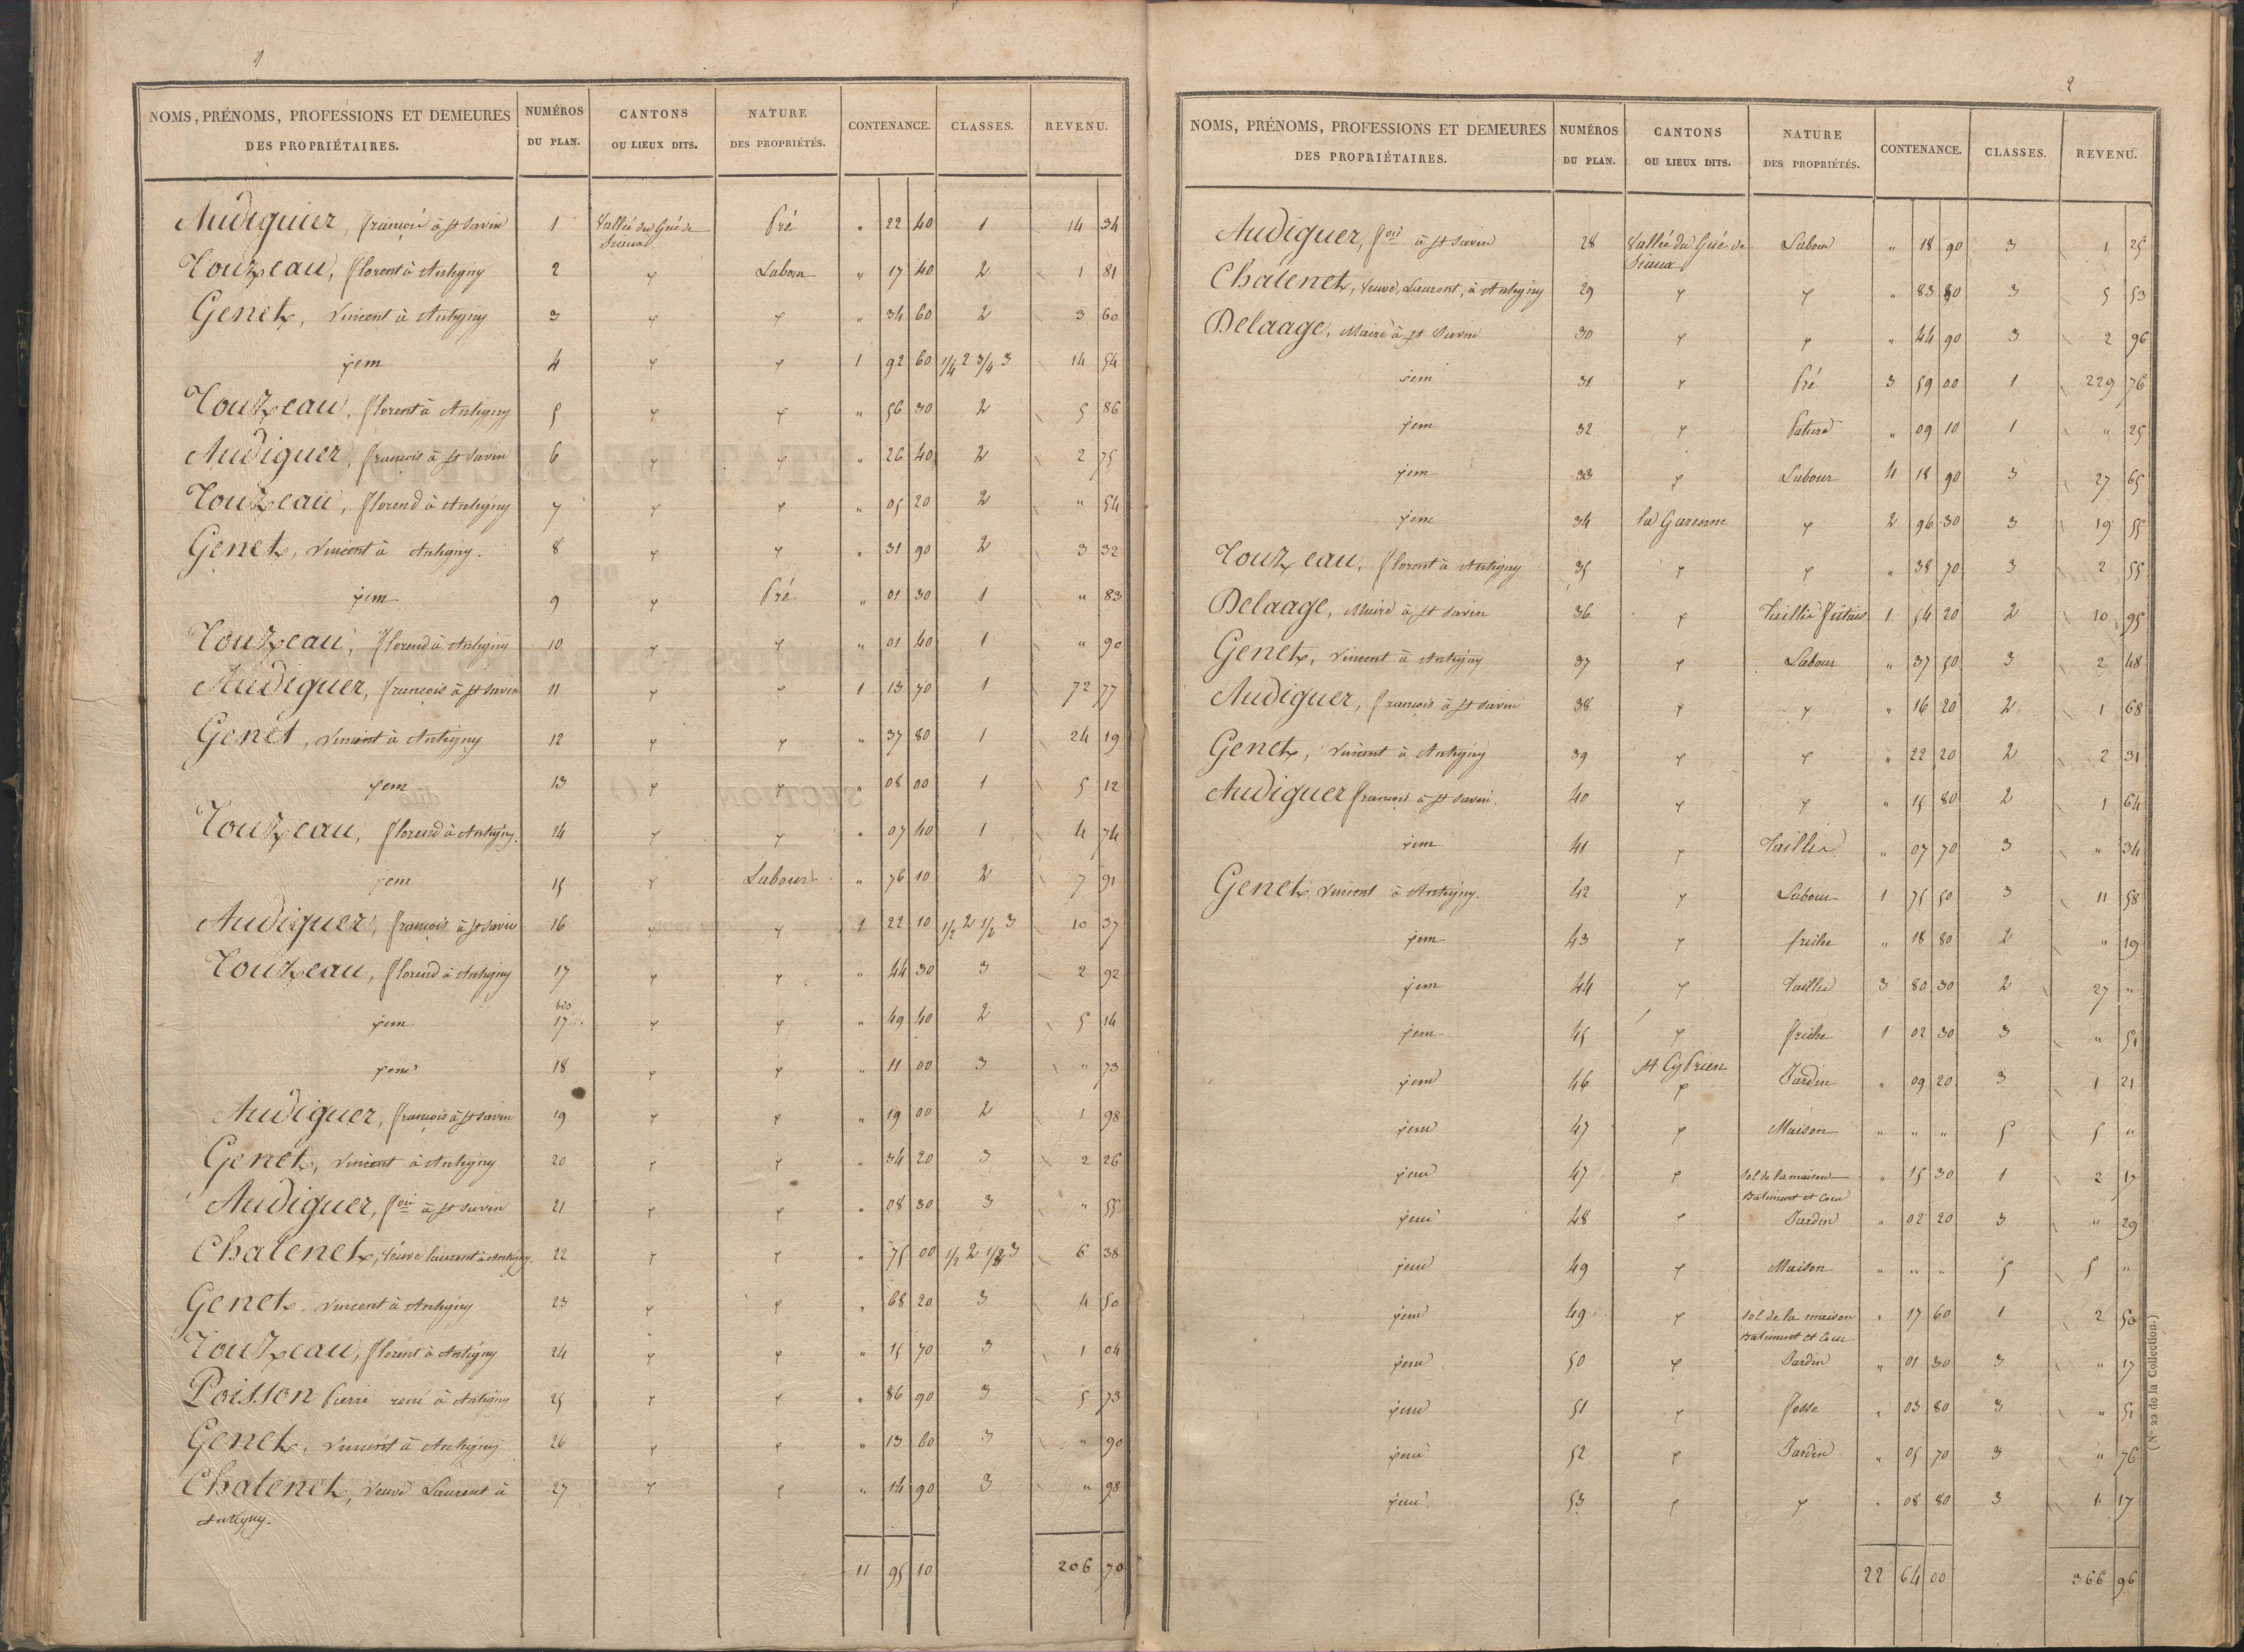 1
NOMS, PRÉNOMS, PROFESSIONS ET DEMEURES DES PROPRIÉTAIRES. NUMÉROS DU PLAN. CANTONS OU LIEUX DITS. NATURE DES PROPRIÉTÉS. CONTENANCE. CLASSES. REVENU.
Audiguier, françois à St Savin 1 Vallée du Gué de Sciaux Pré " 22 40 1 14 34
Touzeau, florent à Antigny 2 " Labour " 17 40 2 1 81
Genet, Vincent à Antigny 3 " " " 34 60 2 3 60
jem 4 " " 1 92 60 1/4 2 3/4 3 14 54
Touzeau, florent à Antigny 5 " " " 56 30 2 5 86
Audiguer, françois à St Savin 6 " " " 26 40 2 2 75
Touzeau, florend à Antigny 7 " " " 05 20 2 " 54
Genet, Vincent à Antigny. 8 " " " 31 90 2 3 32
jem 9 " Pré " 01 30 1 " 83
Touzeau, florend à Antigny 10 " " " 01 40 1 " 90
Audiguer, françois à St Savin 11 " " 1 13 70 1 72 77
Genet, Vincent à Antigny 12 " " " 37 80 1 24 19
jem 13 " " " 08 00 1 5 12
Touzeau, florend à Antigny. 14 " " " 07 40 1 4 74
jem 15 " Labour " 76 10 2 7 91
Audiguer, françois à St Savin 16 " " 1 22 10 1/2 2 1/2 3 10 37
Touzeau, florend à Antigny 17 " " " 44 30 3 2 92
jem 17 bis " " " 49 40 2 5 14
jem 18 " " " 11 00 3 " 73
Audiguer, françois à St Savin 19 " " " 19 00 2 1 98
Genet, Vincent à Antigny 20 " " " 34 20 3 2 26
Audiguer, fois à St Savin 21 " " " 08 30 3 " 55
Chatenet, Veuve laurent à Antigny. 22 " " " 75 00 1/2 2 1/2 3 6 38
Genet. Vincent à Antigny 23 " " " 68 20 3 4 50
Touzeau, florent à Antigny 24 " " " 15 70 3 1 04
Poisson Pierre rené à Antigny 25 " " " 86 90 3 5 73
Genet, Vincent à Antigny 26 " " " 13 60 3 " 90
Chatenet, Veuve Laurent à Antigny. 27 " " " 14 90 3 " 98
11 95 10 206 70
2
NOMS, PRÉNOMS, PROFESSIONS ET DEMEURES DES PROPRIÉTAIRES. NUMÉROS DU PLAN. CANTONS OU LIEUX DITS. NATURE DES PROPRIÉTÉS. CONTENANCE. CLASSES. REVENU.
Audiguer, fois à St Savin 28 Vallée du Gué de Sciaux Labour " 18 90 3 1 25
Chatenet, Veuve, Laurent, à Antigny 29 " " " 83 80 3 5 53
Delaage, Maire à St Savin 30 " " " 44 90 3 2 96
jem 31 " Pré 3 59 00 1 229 76
jem 32 " Pature " 09 10 1 " 25
jem 33 " Labour 4 18 90 3 27 65
jem 34 la Garenne " 2 96 30 3 19 55
Touzeau, florent à Antigny 35 " " " 38 70 3 2 55
Delaage, Maire à St Savin 36 " Taillis futaie 1 54 20 2 10 95
Genet, Vincent à Antigny 37 " Labour " 37 50 3 2 48
Audiguer, françois à St Savin 38 " " " 16 20 2 1 68
Genet, Vincent à Antigny 39 " " " 22 20 2 2 31
Audiguer françois à St Savin. 40 " " " 15 80 2 1 64
jem 41 " Taillis " 07 70 3 " 34
Genet Vincent à Antigny. 42 " Labour 1 75 50 3 11 58
jem 43 " friche " 18 80 2 " 19
jem 44 " Taillis 3 80 30 2 27 "
jem 45 " friche 1 02 30 3 " 51
jem 46 St Cyprien " Jardin " 09 20 3 1 21
jem 47 " Maison " " " 5 5 "
jem 47 " Sol de la maison Batiment et Cour " 15 30 1 2 17
jem 48 " Jardin " 02 20 3 " 29
jem 49 " Maison " " " 5 5 "
jem 49 " Sol de la maison Batiment et Cour " 17 60 1 2 50
jem 50 " Jardin " 01 30 3 " 17
jem 51 " fosse " 03 80 3 " 51
jem 52 " Jardin " 05 70 3 " 76
jem 53 " " " 08 80 3 1 17
22 64 00 366 96
(N° 22 de la Collection.)